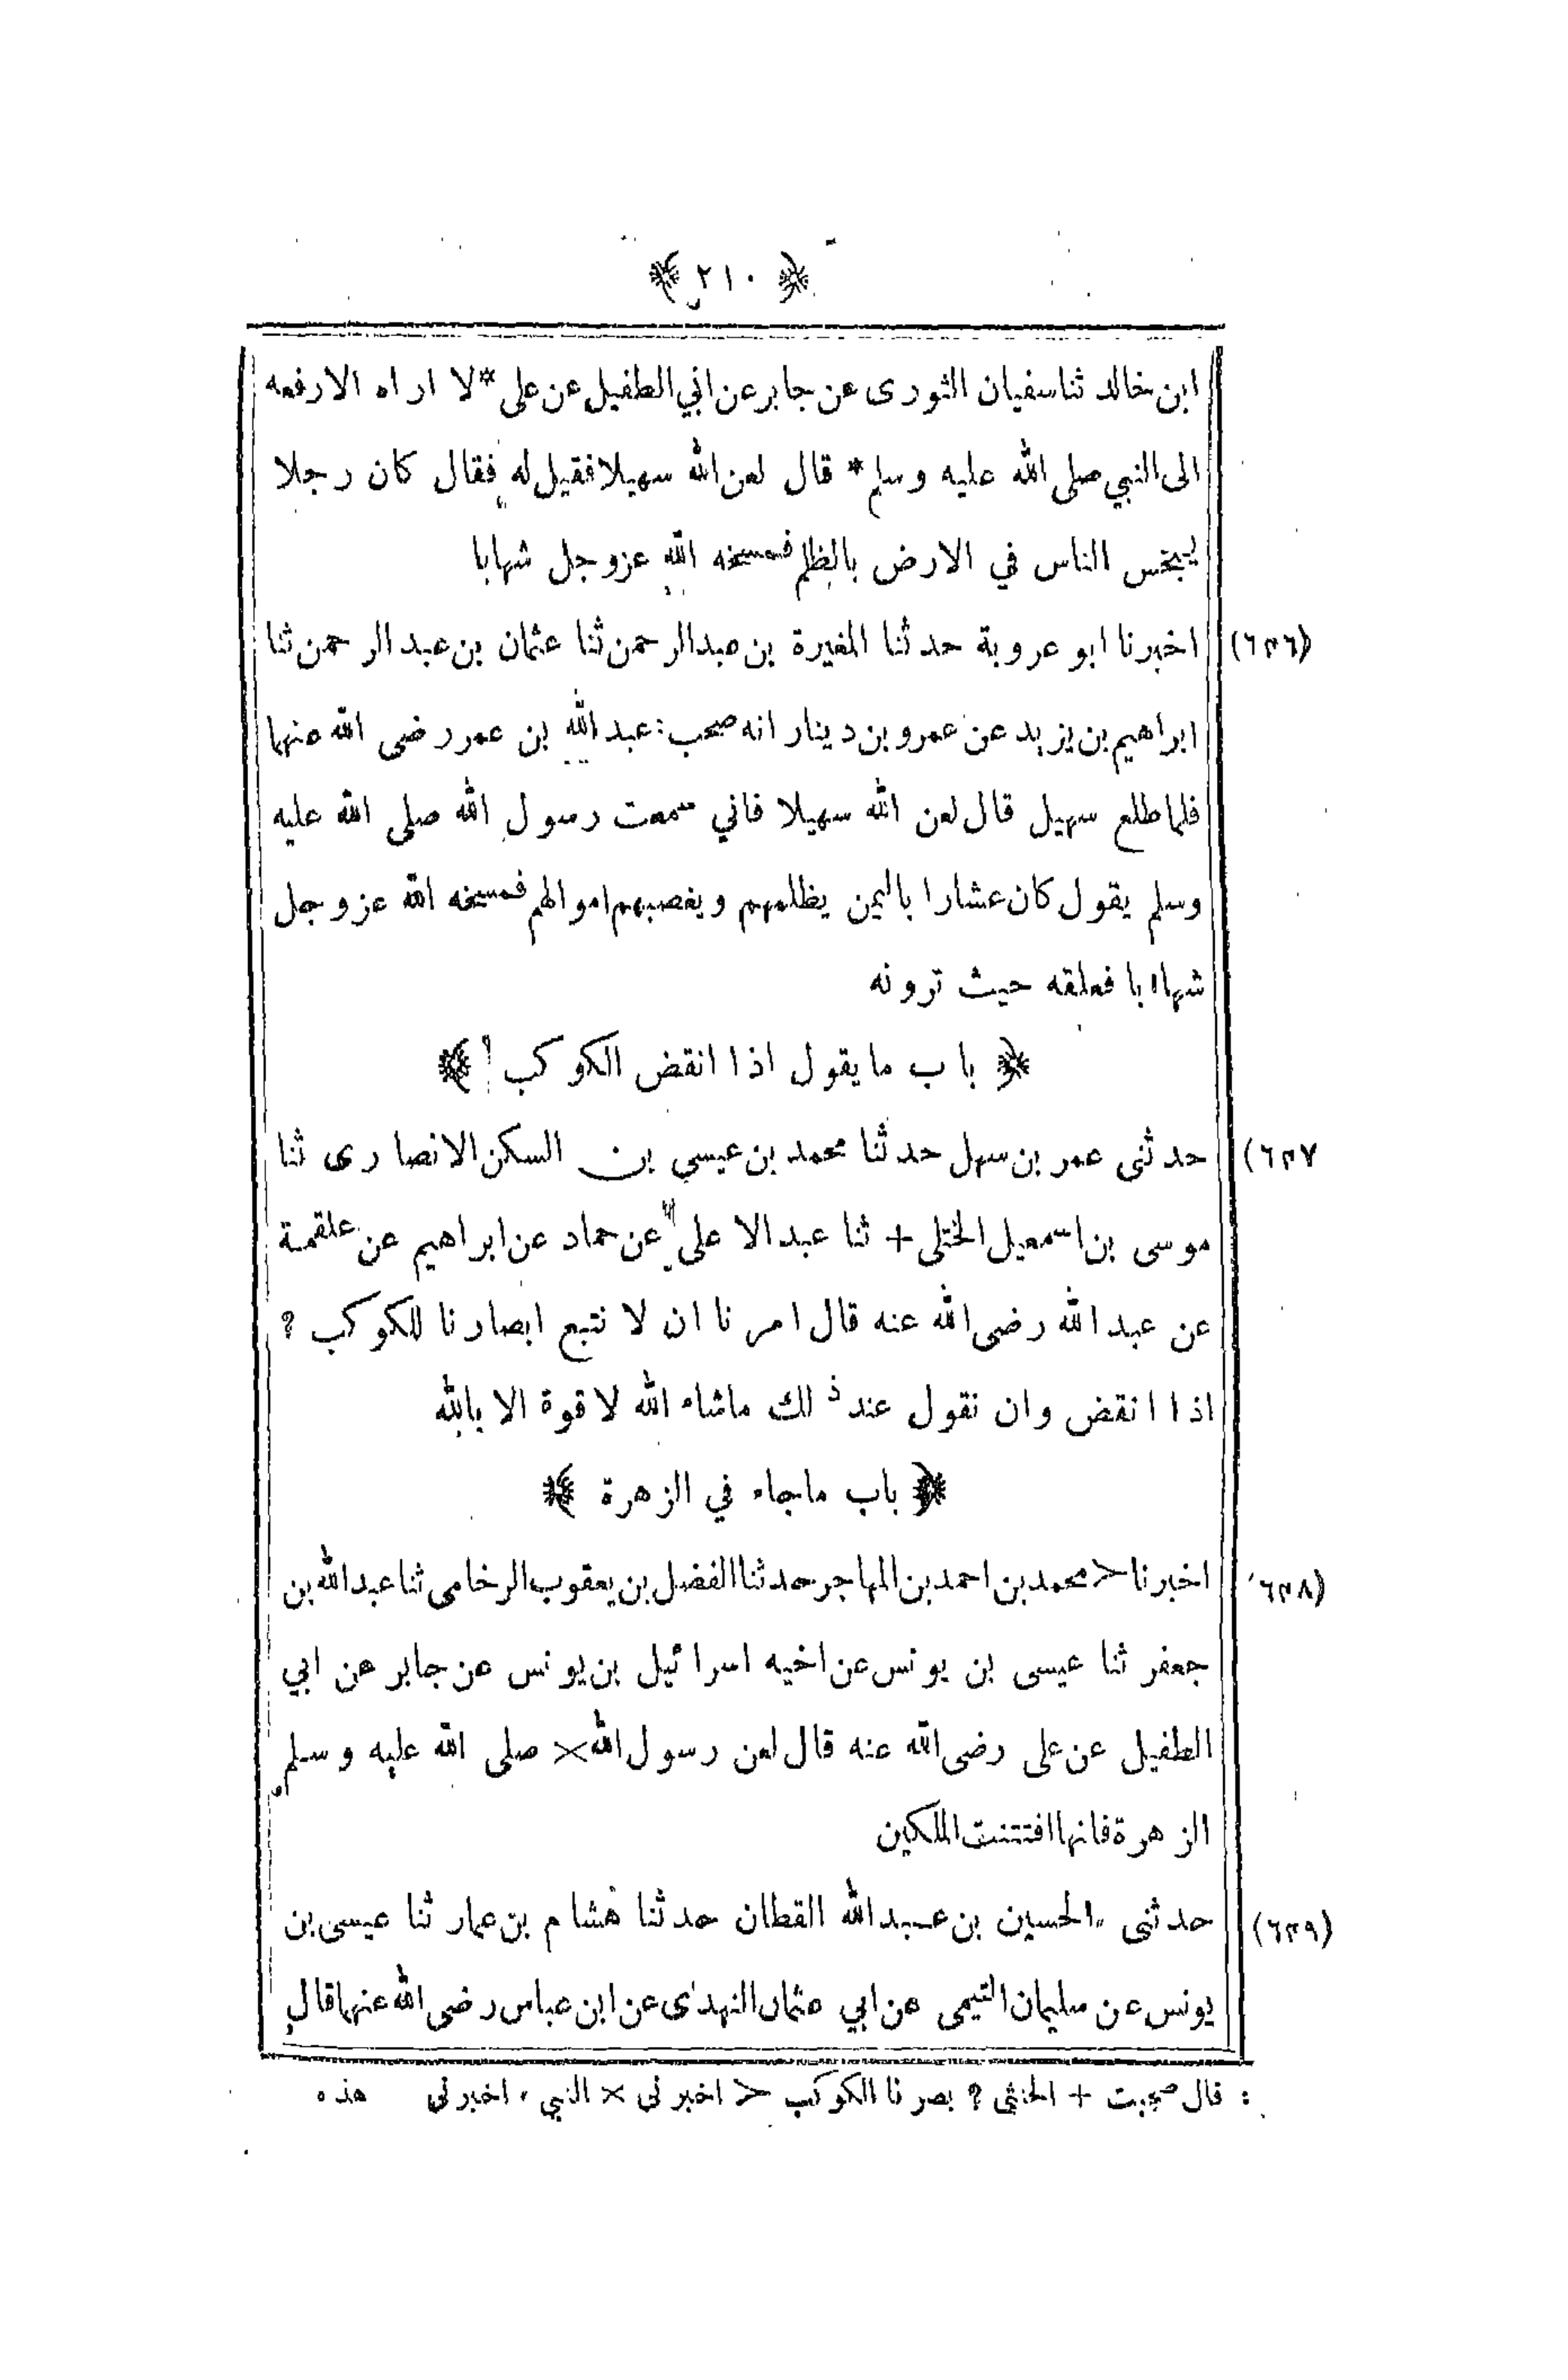 ﴿ ٢١٠ ﴾
ابن خالد ثنا سفيان الثورى عن جابر عن ابي الطفيل عن على * لا اراه الا رفعه
الى النبي صلى الله عليه وسلم * قال لعن الله سهيلا فقيل له فقال كان رجلا
يبخس الناس في الارض بالظلم فمسخه الله عزوجل شهابا
(٦٤٦) اخبرنا ابو عروبة حدثنا المغيرة بن عبدالرحمن ثنا عثمان بن عبد الرحمن ثنا
ابراهيم بن يزيد عن عمرو بن دينار انه صحب : عبد الله بن عمر رضى الله عنهما
فلما طلع سهيل قال لعن الله سهيلا فاني سمعت رسول الله صلى الله عليه
وسلم يقول كان عشارا باليمن يظلمهم ويغصبهم اموالهم فمسخه الله عزوجل
شهابا فعلقه حيث ترونه
﴿ باب ما يقول اذا انقض الكوكب ﴾
(٦٤٧ حدثنى عمر بن سهل حدثنا محمد بن عيسي بن السكن الانصارى ثنا
موسى بن اسمعيل الختلى + ثنا عبد الا على عن حماد عن ابراهيم عن علقمة
عن عبد الله رضى الله عنه قال امرنا ان لا نتبع ابصارنا للكوكب ?
اذا انقض وان نقول عند ذلك ماشاء الله لا قوة الا بالله
﴿ باب ماجاء في الزهرة ﴾
(٦٤٨ اخبرنا < محمد بن احمد بن المهاجر حدثنا الفضل بن يعقوب الرخامى ثنا عبد الله بن
جعفر ثنا عيسى بن يونس عن اخيه اسرائيل بن يونس عن جابر عن ابي
الطفيل عن على رضى الله عنه قال لعن رسول الله × صلى الله عليه وسلم
الزهرة فانها افتتنت الملكين
(٦٤٩) حدثنى الحسين بن عبد الله القطان حدثنا هشام بن عمار ثنا عيسى بن
يونس عن سليمان التيمى عن ابي عثمان النهدى عن ابن عباس رضى الله عنهما قال
: قال صحبت + الخنثى ? بصرنا الكوكب < اخبرنى × النبي ، اخبرنى هذه